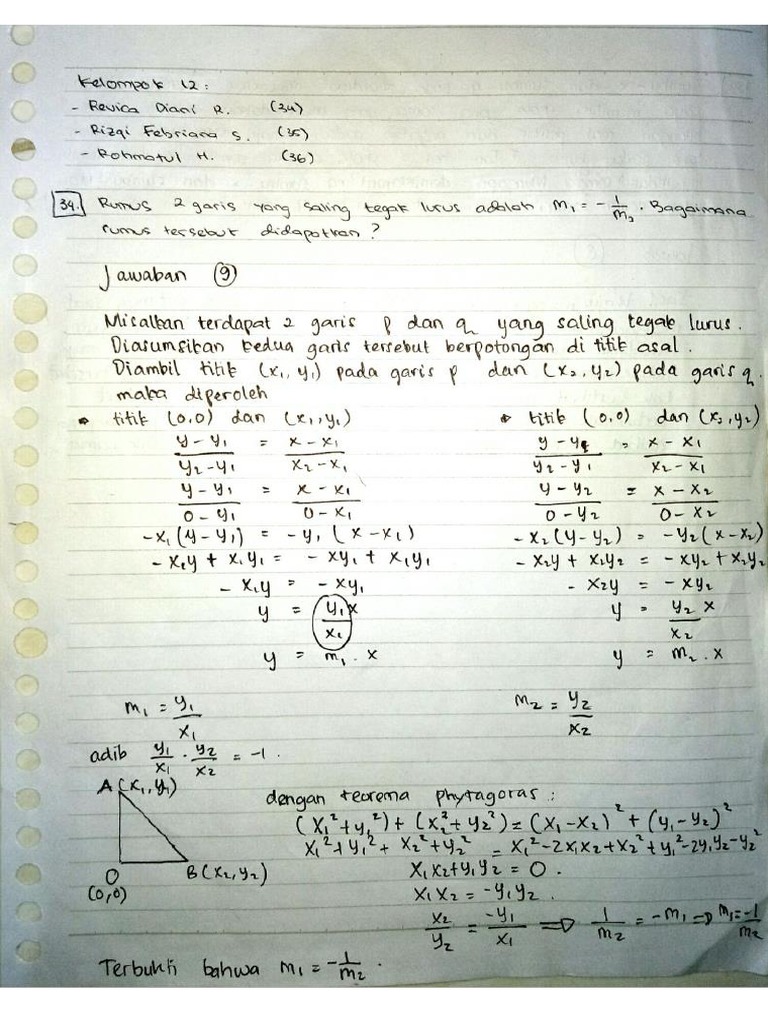 Kelompok 12:
- Revica Diani R. (34)
- Rizqi Febriana S. (35)
- Rohmatul H. (36)
34. Rumus 2 garis yang saling tegak lurus adalah m₁ = -1/m₂. Bagaimana
rumus tersebut didapatkan?
Jawaban (9)
Misalkan terdapat 2 garis p dan q yang saling tegak lurus.
Diasumsikan kedua garis tersebut berpotongan di titik asal.
Diambil titik (x₁, y₁) pada garis p dan (x₂, y₂) pada garis q.
maka diperoleh
• titik (0,0) dan (x₁, y₁)
(y - y₁)/(y₂ - y₁) = (x - x₁)/(x₂ - x₁)
(y - y₁)/(0 - y₁) = (x - x₁)/(0 - x₁)
-x₁(y - y₁) = -y₁(x - x₁)
-x₁y + x₁y₁ = -xy₁ + x₁y₁
-x₁y = -xy₁
y = y₁/x₁ x
y = m₁ . x
• titik (0,0) dan (x₂, y₂)
(y - y₁)/(y₂ - y₁) = (x - x₁)/(x₂ - x₁)
(y - y₂)/(0 - y₂) = (x - x₂)/(0 - x₂)
-x₂(y - y₂) = -y₂(x - x₂)
-x₂y + x₂y₂ = -xy₂ + x₂y₂
-x₂y = -xy₂
y = y₂/x₂ x
y = m₂ . x
m₁ = y₁/x₁
m₂ = y₂/x₂
adib y₁/x₁ . y₂/x₂ = -1.
A(x₁, y₁)
O
(0,0)
B(x₂, y₂)
dengan teorema phytagoras :
(x₁² + y₁²) + (x₂² + y₂²) = (x₁ - x₂)² + (y₁ - y₂)²
x₁² + y₁² + x₂² + y₂² = x₁² - 2x₁x₂ + x₂² + y₁² - 2y₁y₂ - y₂²
x₁x₂ + y₁y₂ = 0.
x₁x₂ = -y₁y₂.
x₂/y₂ = -y₁/x₁ ⇒ 1/m₂ = -m₁ ⇒ m₁ = -1/m₂
Terbukti bahwa m₁ = -1/m₂.